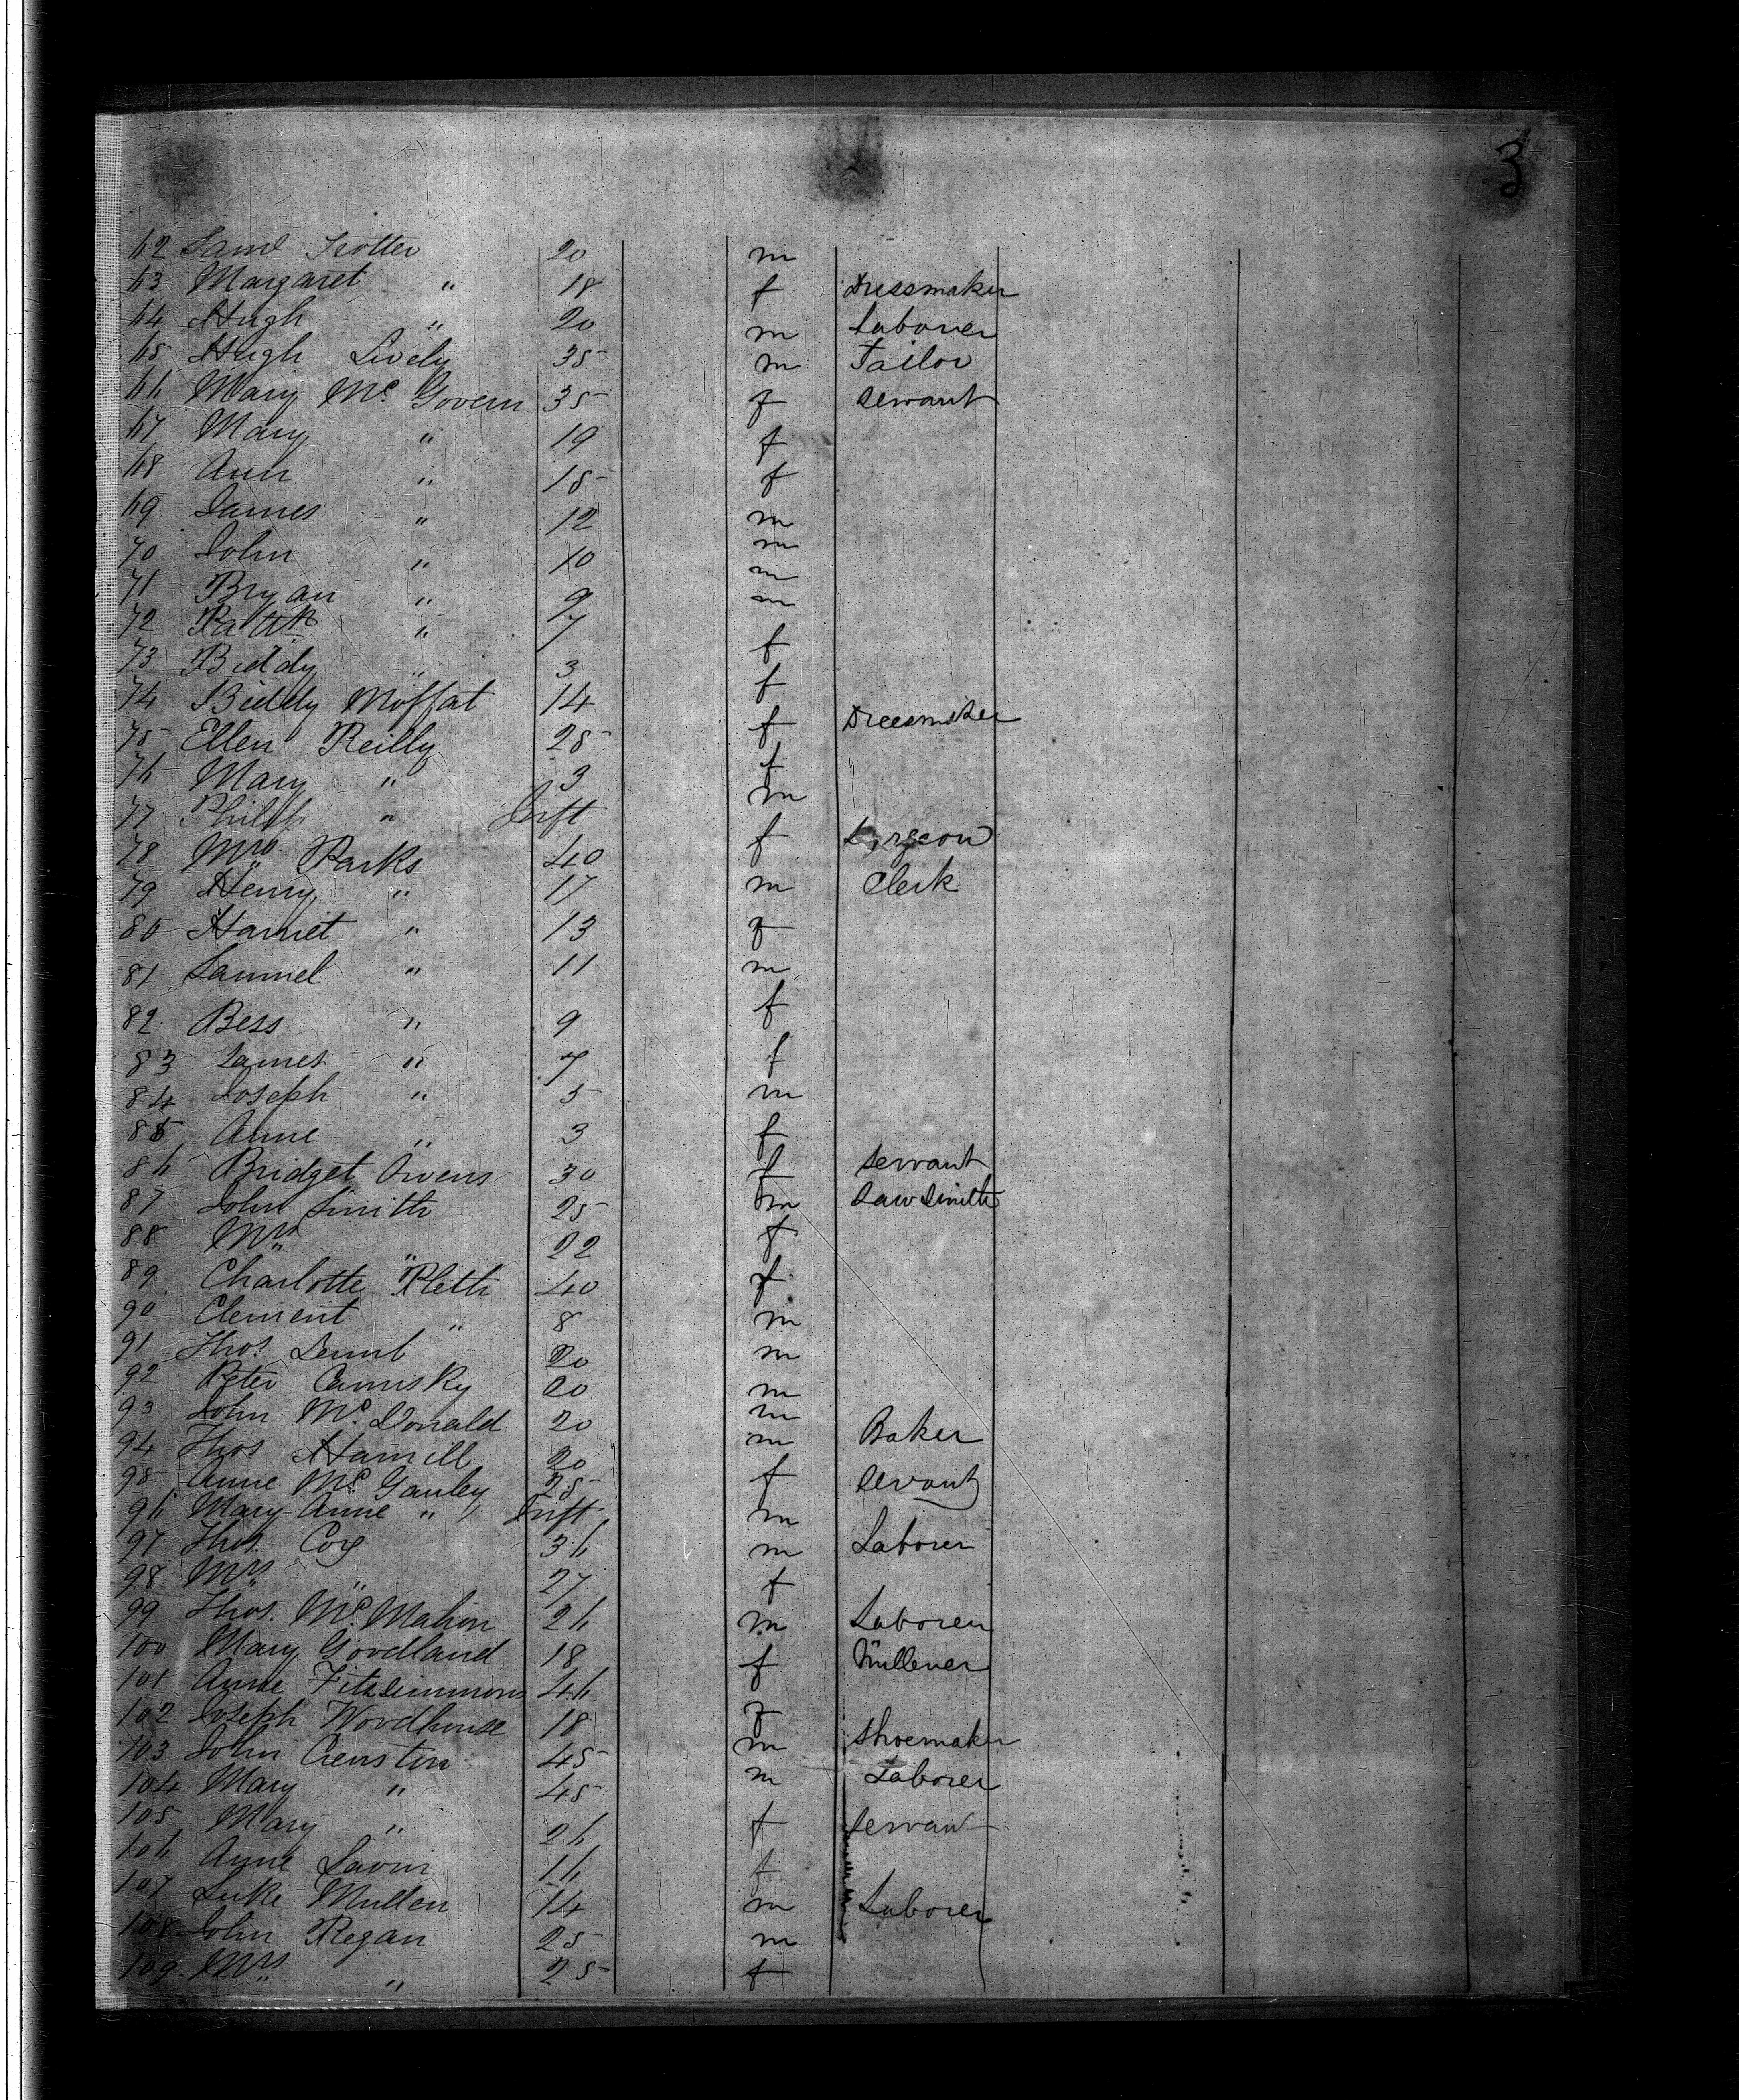 3
62 Saml Trotter 20 m
63 Margaret " 18 f Dressmaker
64 Hugh " 20 m Laborer
65 Hugh Lively 35 m Tailor
66 Mary Mc Govern 35 f Servant
67 Mary " 19 f
68 Ann " 15 f
69 James " 12 m
70 John " 10 m
71 Bryan " 9 m
72 Patk " 7 m
73 Biddy " 3 f
74 Biddy Moffat 14 f
75 Ellen Reilly 25 f Dressmaker
76 Mary " 3 f
77 Philip " Inft m
78 Mrs Parks 40 f
79 Henry " 17 m Clerk
80 Harriet " 13 f
81 Samuel " 11 m
82 Bess " 9 f
83 James " 7 f
84 Joseph " 5 m
85 Anne " 3 f
86 Bridget Owens 30 f Servant
87 John Smith 25 m Saw Smith
88 Mrs " 22 f
89 Charlotte Pleth 40 f
90 Clement " 8 m
91 Thos. 20 m
92 Peter Cumisky 20 m
93 John Mc Donald 20 m
94 Thos Hamill 20 m Baker
95 Anne Mc Gauley 25 f Servant
96 Mary Anne " Inft m
97 Thos. Coy 36 m Laborer
98 Mrs " 27 f
99 Thos. Mc Mahon 26 m Laborer
100 Mary Goodland 18 f Millener
101 Anne Fitzsimmons 46 f
102 Joseph Woodhouse 18 m Shoemaker
103 John 45 m Laborer
104 Mary " 45
105 Mary " 26 f Servant
106 Anne Lavin 16 f
107 Luke Mullen 14 m Laborer
108 John Regan 25 m
109 Mrs " 25 f